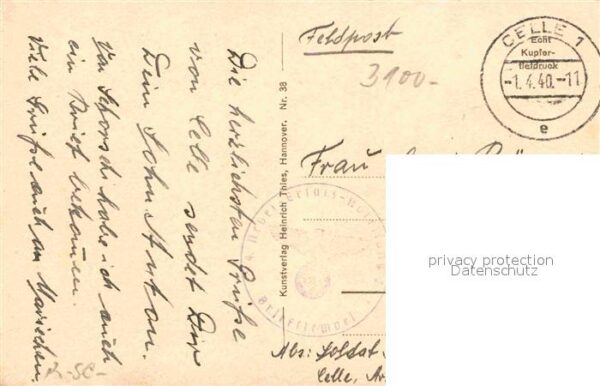 Die herzlichsten Grüße
von Celle sendet Dir
Dein Sohn Anton.
Von Schorschi habe ich auch
ein Brief bekommen.
Viele Grüße auch an Mariechen.
Kunstverlag Heinrich Thies, Hannover. Nr. 38
Feldpost
3100-
CELLE 1
Echt
Kupfer-
tiefdruck
-1.4.40.-11
e
Frau
privacy protection
Datenschutz
Abs: Soldat
Celle,